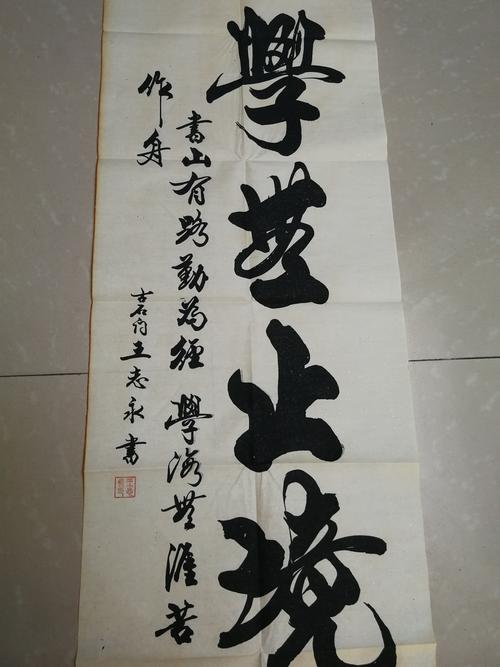 學無止境
書山有路勤為經 學海無涯苦
作舟
王志永書